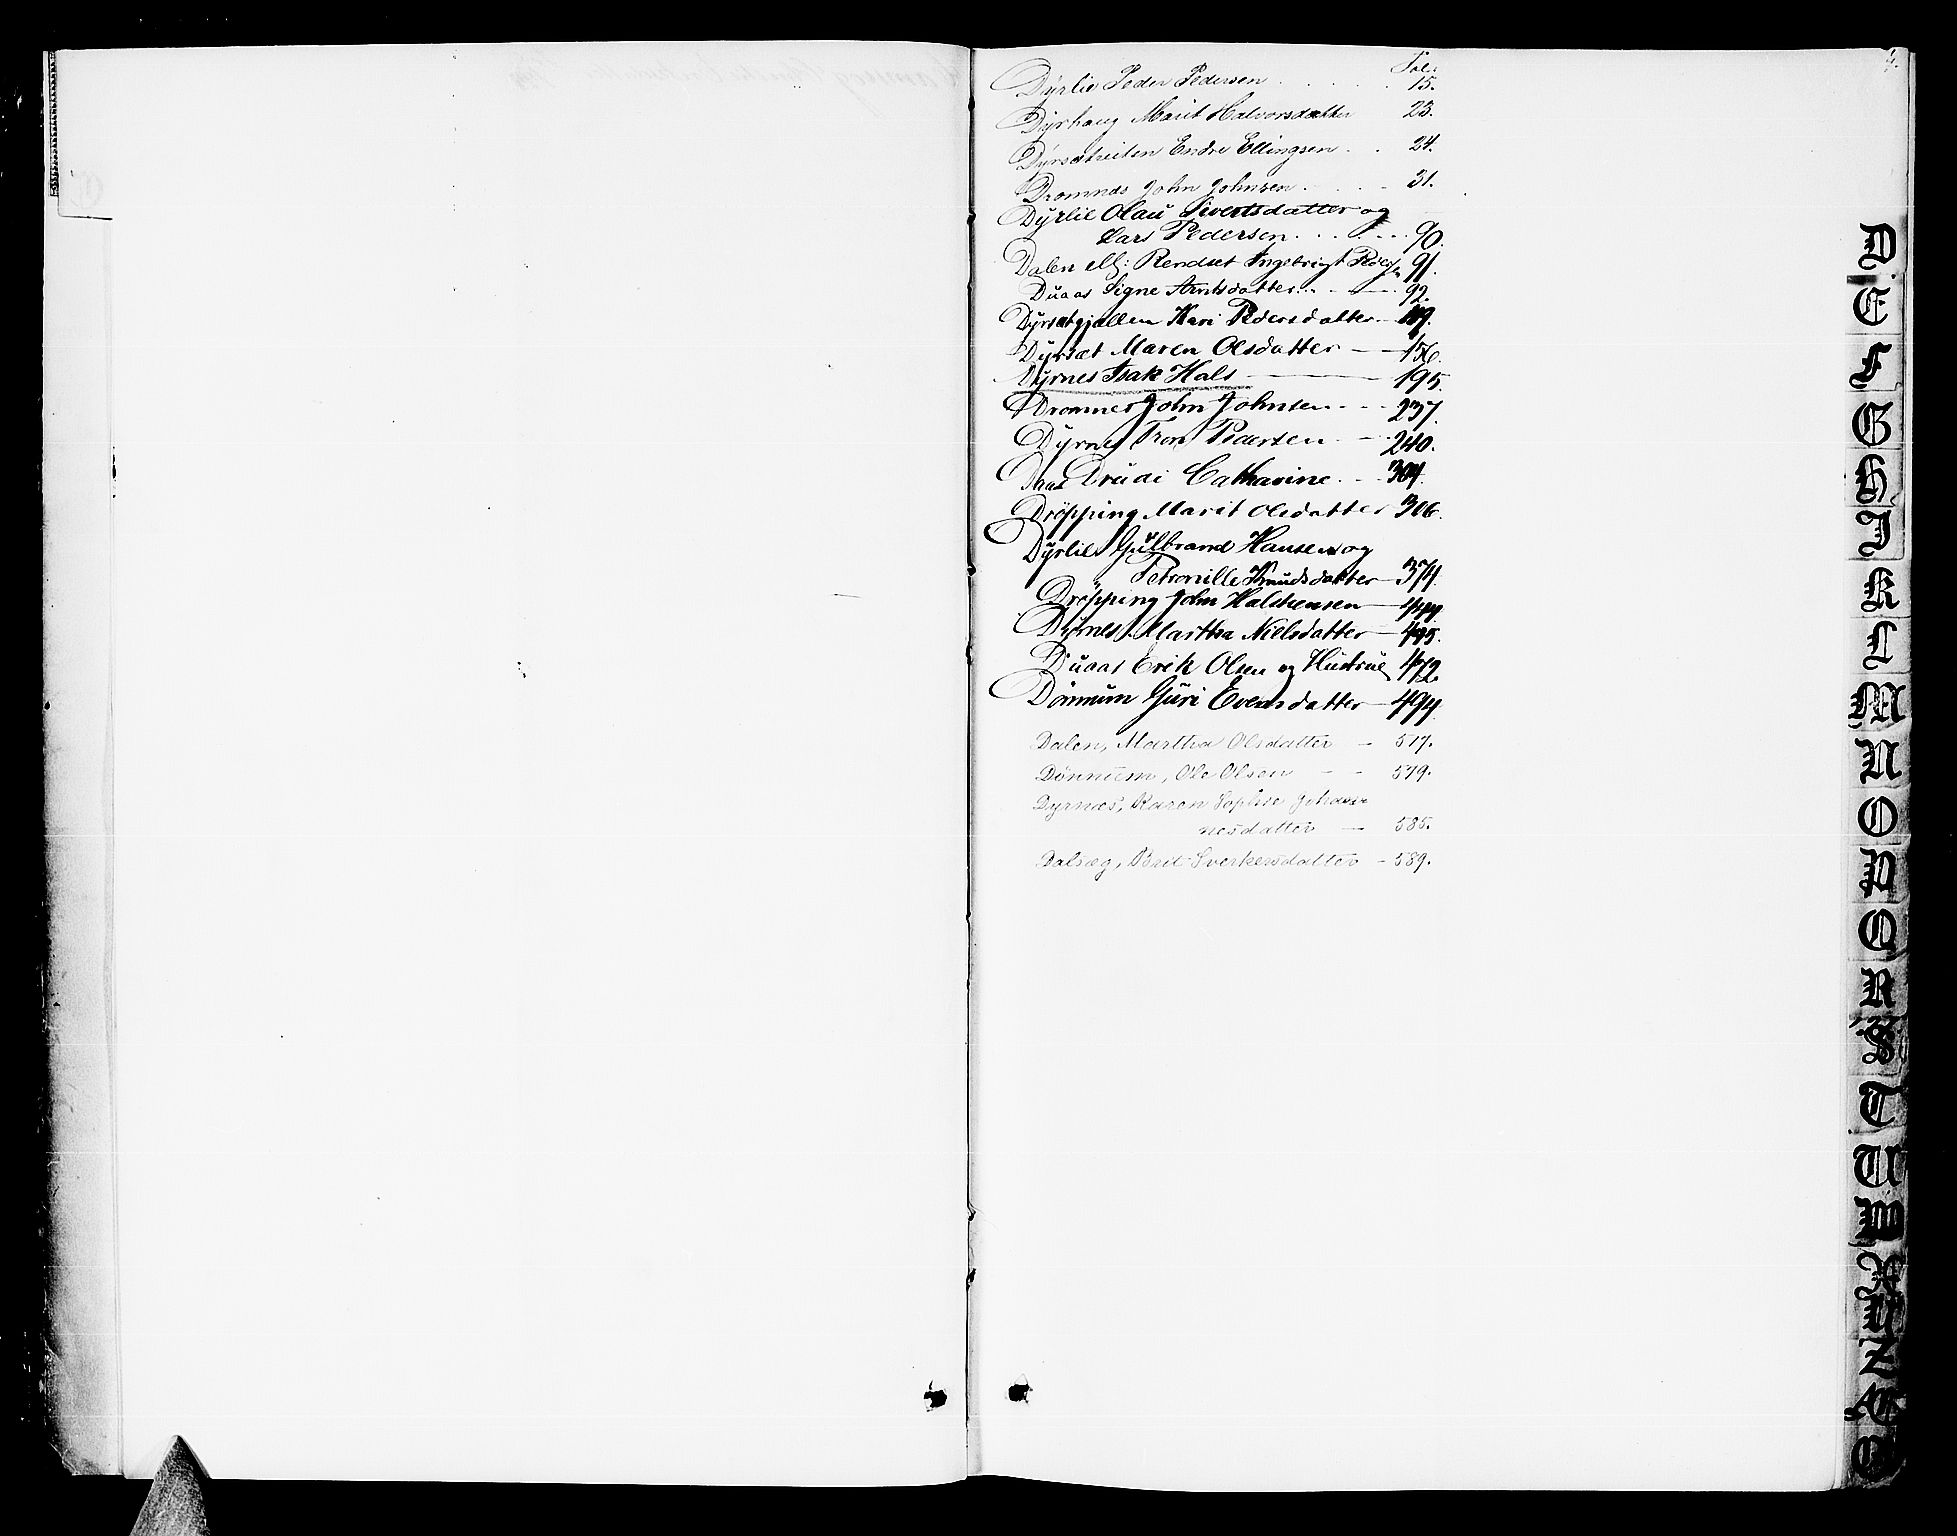 4.
Fol.
Dyrlie Peder Pedersen . . . . . . 15.
Dyrhaug Marit Halvorsdatter 23.
Dyrsætreiten Endre Ellingsen . . 24.
Dromnæs John Johnsen . . . . 31.
Dyrlie Olau Sivertsdatter og
Lars Pedersen . . . . . . . 90.
Dalen ell: Rendset Ingebrigt 91.
Duaas Signe Arntsdatter . . . 92.
Dyrsætgjællen Kari Pedersdatter
Dyrsæt Maren Olsdatter — 156.
Dyrnes Isak Hals — 195.
Dromnes John Johnsen . . . 237.
Dyrnes Tron Pedersen . — . 240.
Daae Drudi Catharine . . . 304.
Dröpping Marit Olsdatter 306.
Dyrlie Gulbrand Hansen og
Petronille Knudsdatter — 374.
Dröpping John Halstensen —
Dyrnes Martha Nielsdatter —
Duaas Erik Olsen og Hustrue 472.
Dönnum Guri Evensdatter — 494.
Dalen, Martha Olsdatter — 577.
Dönnum, Ole Olsen — — 579.
Dyrnæs, Karen Sophie Johan-
nesdatter — 585.
Dalsæg, Brit Sverkersdatter — 589.
D
E
F
G
H
I
K
L
M
N
O
P
Q
R
S
T
U
W
X
Y
Z
Æ
Ø